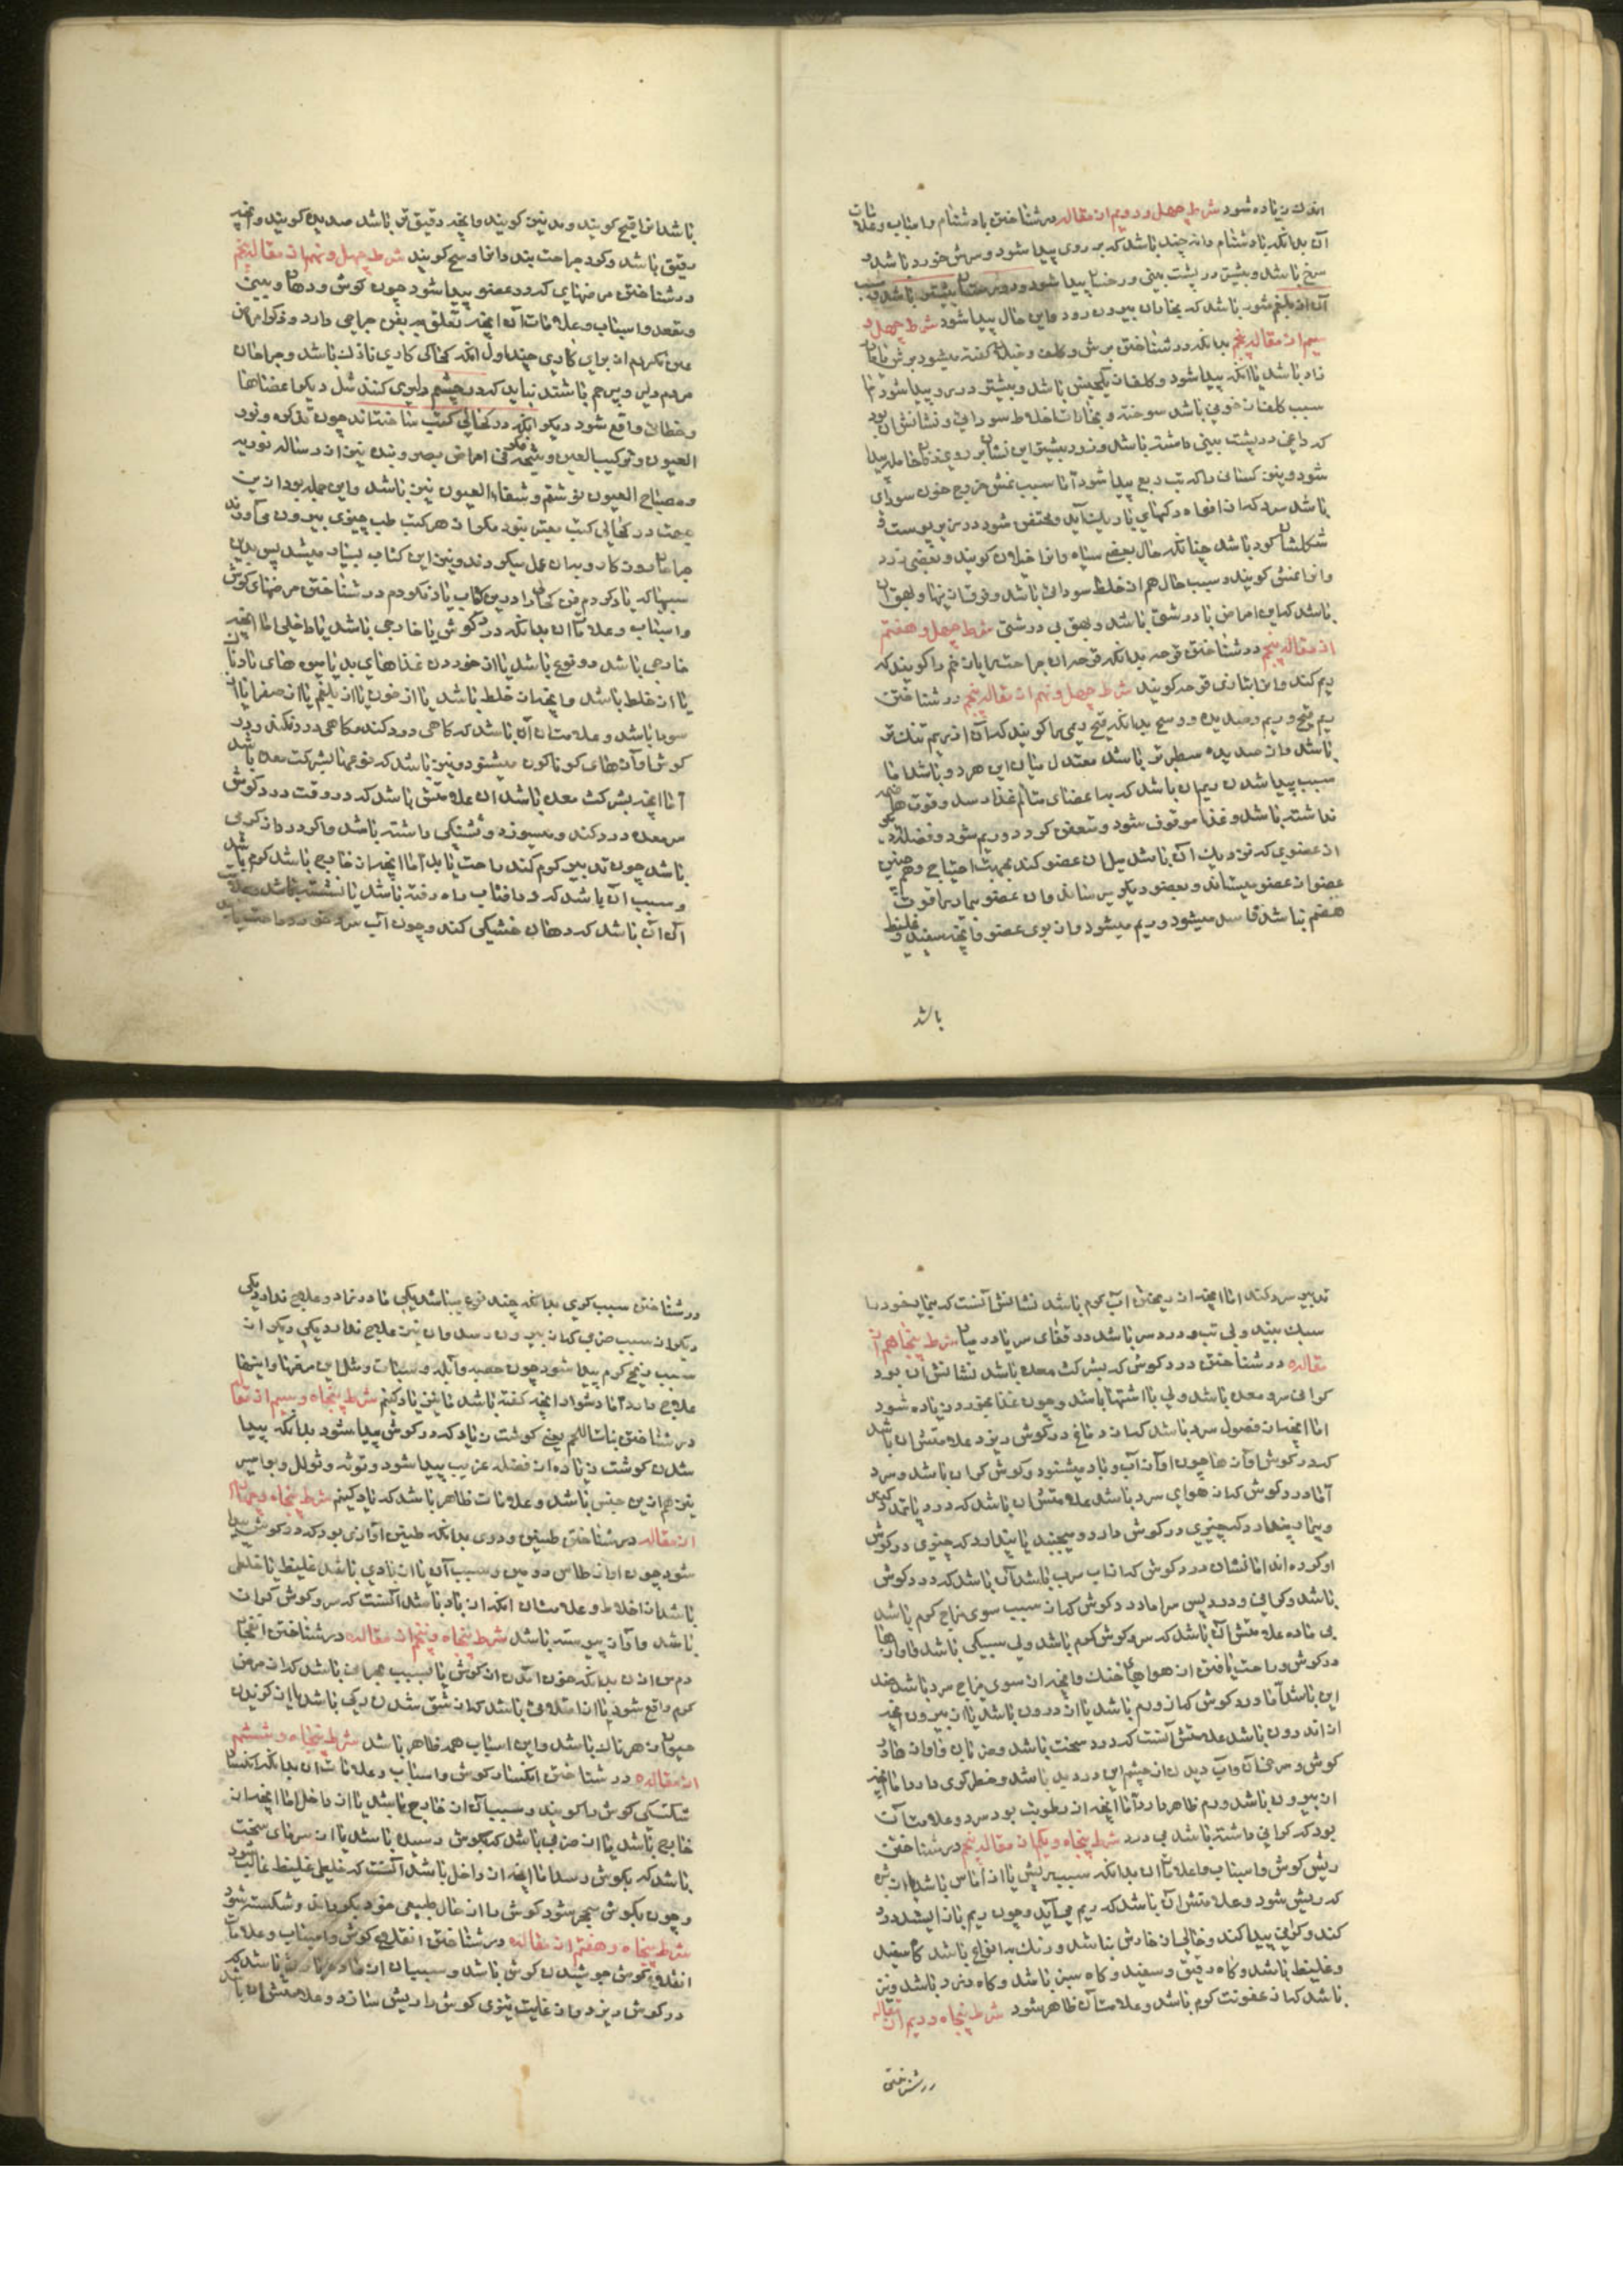 اندك زیاده شود شرط چهل و دویم از مقاله در شناختن بادشنام و اسباب و علامات
آن بدانکه بادشنام دانه چند باشد که بر روی پیدا شود و سرش خورد باشد و
سرخ باشد و بیشتر در پشت بینی و رخسار پیدا شود و در زمستان بیشتر باشد و سبب
آن از بلغم شور باشد که بخار آن بیرون رود و این حال پیدا شود شرط چهل و
سیم از مقاله پنجم بدانکه در شناختن برش و کلف و خیلان گفته میشود برش
زاد باشد یا آنکه پیدا شود و کلف از یکجنس باشد و بیشتر در رو پیدا شود اما
سبب کلف از خونی باشد سوخته و بخارات اخلاط سوداوی و نشانش آن بود
که داغی در پشت بینی داشته باشد و زود بیشتر این نشان بر روی زنان حامله پیدا
شود و نیز کسانی را که تب ربع پیدا شود اما سبب نمش خروج خون سودای
باشد سرد که از افواه رکهای باریك آید و محتقن شود در زیر پوست و
شکلشان کود باشد چنانکه خال بعضی سیاه و انرا خیلان کویند و بعضی زرد
و انرا نمش کویند و سبب خال هم از خلط سوداوی باشد و فرق از اینها و بهق آن
باشد که این امراض با درشتی باشد و بهق بی درشتی شرط چهل و هفتم
از مقاله پنجم در شناختن قرحه بدانکه قرحه آن جراحت را یا زخم را کویند که
ریم کند و انرا بتازی قرحه کویند شرط چهل و نهم از مقاله پنجم در شناختن
ریم قیح و ریم و صدیده و وسخ بدانکه قیح ریمی را کویند که آن از ریم تنك تر
باشد و از صدیده سطبرتر باشد معتدل میان این هر دو باشد اما
سبب پیدا شدن ریم آن باشد که بدا عضای متألم غذا رسد و قوت هاضمه
نداشته باشد و غذا موقوف شود و متعفن کردد و ریم شود و فضله دیکر
از عضوی که نزدیك آن باشد میل آن عضو کند بجهت احتیاج و هم چنین
عضو از عضو میستاند و بعضو دیکر میرساند و آن عضو بیمار را قوت
هضم نباشد فاسد میشود و ریم میشود و از بوی عضو و آنچه سفید و غلیظ
باشد
باشد انرا قیح کویند و مدبنین کویند و آنچه دقیق تر باشد صدیده کویند و آنچه
رقیق باشد و کرد جراحت بندد انرا وسخ کویند شرط چهل و نهم از مقاله پنجم
در شناختن مرضهای که در عضو پیدا شود چون کوش و دهان و بینی
و مقعد و اسباب و علامات آن آنچه تعلق بفن جراحی دارد و ذکر امراض
عین نکردم از برای کاری چند اول آنکه کحالی کاری نازك باشد و جراحان
مردم دلیر و بیرحم باشند نباید که در چشم دلیری کنند مثل دیکر اعضاها
و خطائی واقع شود دیکر آنکه در کحالی کتب ساخته اند چون تذکره و نور
العیون و ترکیب العین و نتیجه فکر فی امراض بصر و بنده نیز از رساله نوریه
و مصباح العیون نوشتم و شفاء العیون نیز باشد و این جمله بود ازین
جهت در کحالی کتب معتبر بنود مکر از هر کتب طب چیزی بیرون می آورند
جراحان و کارد بدان عمل میکردند و نیز این کتاب بسیار میشد پس بدین
سببها که یاد کردم فن کحالی را درین کتاب یاد نکردم در شناختن مرضهای کوش
و اسباب و علامات آن بدانکه درد کوش یا خارجی باشد یا داخلی اما آنچه
خارجی باشد دو نوع باشد یا از خوردن غذاهای بد یا میوه های نادان
یا از خلط باشد و آنچه از خلط باشد یا از خون یا از بلغم یا از صفرا یا از
سودا باشد و علامت آن باشد که کاهی درد کند و کاهی درد نکند و در
کوش آوازهای کوناکون میشنود و نیز باشد که نوعها بشرکت معده باشد
اما آنچه بشرکت معده باشد از علامتش باشد که در وقت درد کوش
سر معده درد کند و میسوزد و تشنکی داشته باشد و اکر درد از کرمی
باشد چون تدبیر کرم کند راحت یابد اما آنچه از خارج باشد کرم باشد
و سبب آن باشد که در آفتاب راه رفته باشد یا نشسته باشد و علامت
آن آن باشد که دهان خشکی کند و چون آب سرد خورد راحت یابد
تدبیر سرد کند اما آنچه از ریختن آب کرم باشد نشانش آنست که بیمار خود را
سبك بیند و بی تب و درد سر باشد در قفای سر یا در میان شرط پنجاهم از
مقاله در شناختن درد کوش که بشرکت معده باشد نشانش آن بود
کرانی سر و معده باشد و بی با اشتها باشد و چون غذا بخورد زیاده شود
اما آنچه از فضول سرد باشد که از دماغ در کوش ریزد علامتش آن باشد
که در کوش آوازها چون آواز آب و باد میشنود و کوش کران باشد و سرد
اما درد کوش که از هوای سرد باشد علامتش آن باشد که درد با تمدد کند
و بیمار پندارد که چیزی در کوش دارد و میجنبد یا پندارد که چیزی در کوش
او کرده اند اما نشان درد کوش که از آب سرد باشد آن باشد که درد کوش
باشد و کرانی و درد پس سر اما درد کوش که از سبب سوی مزاج کرم باشد
بی ماده علامتش آن باشد که سر و کوش کرم باشد ولی سبکی باشد و آوازها
در کوش و راحت یافتن از هواهای خنك و آنچه از سوی مزاج سرد باشد ضد
این باشد اما درد کوش که از ورم باشد یا از درون باشد یا از بیرون آنچه
از اندرون باشد علامتش آنست که درد سخت باشد و ضربان و آوازها در
کوش و سرخی آن و آب دیدن از چشم این درد بد باشد و خطر کری دارد اما آنچه
از بیرون باشد ورم ظاهر دارد اما آنچه از رطوبت بود سرد و علامت آن
بود که کرانی داشته باشد بی درد شرط پنجاه و یکم از مقاله پنجم در شناختن
ریش کوش و اسباب و علامات آن بدانکه سبب ریش یا از آماس باشد یا از بثره
که ریش شود و علامتش آن باشد که ریم می آید و چون ریم باز ایستد درد
کند و کرانی پیدا کند و خالی از خارش نباشد و رنك بد انواع باشد کاه سفید
و غلیظ باشد و کاه رقیق و سفید و کاه سبز باشد و کاه زرد باشد و نیز
باشد که از عفونت کرم باشد و علامت آن ظاهر شود شرط پنجاه و دویم از مقاله
در شناختن
در شناختن سبب کری بدانکه چند نوع میباشد یکی مادرزاد و علاج ندارد یکی
دیکر از سبب ضربی که از بیرون رسد و آن نیز علاج ندارد یکی دیکر از
سبب رنج کرم پیدا شود چون حصبه و آبله و سبات و مثل این مرضها و اینها
علاج دارد اما دشوار آنچه کفته باشد ما نیز یاد کنیم شرط پنجاه و سیم از مقاله
در شناختن نبات اللحم یعنی کوشت زیاد که در کوش پیدا شود بدانکه پیدا
شدن کوشت زیاده از فضله غریب پیدا شود و توثه و ثولل و بواسیر
نیز هم از این جنس باشد و علامات ظاهر باشد که یاد کنیم شرط پنجاه و چهارم
از مقاله در شناختن طنین و دوی بدانکه طنین آوازی بود که در کوش پیدا
شود چون آواز طاس و سبب آن یا از بادی باشد غلیظ یا خلطی
باشد از اخلاط و علامت آن آنکه از باد باشد آنست که سر و کوش کران
باشد و آواز پیوسته باشد شرط پنجاه و پنجم از مقاله در شناختن انفجار
دم من اذن بدانکه خون آمدن از کوش یا بسبب بحران باشد که از مرض
کرم واقع شود یا از امتلائی باشد که از شق شدن رکی باشد یا از کزیدن
حیوان زهرناك باشد و این اسباب همه ظاهر باشد شرط پنجاه و ششم
از مقاله در شناختن انکسار کوش و اسباب و علامات آن بدانکه انکسار
شکستکی کوش را کویند و سبب آن از خارج باشد یا از داخل اما آنچه از
خارج باشد یا از ضربی باشد که بکوش رسیده باشد یا از سرمای سخت
باشد که بکوش رسد اما آنچه از داخل باشد آنست که خلطی غلیظ غالب شود
و چون بکوش منجر شود کوش را از حال طبیعی خود بکرداند و شکسته شود
شرط پنجاه و هفتم از مقاله در شناختن انقلاع کوش و اسباب و علامات
انقلاع کوش جوشیدن کوش باشد و سبب آن از ماده باشد که
در کوش ریزد و از غایت تیزی کوش را ریش سازد و علامتش آن باشد